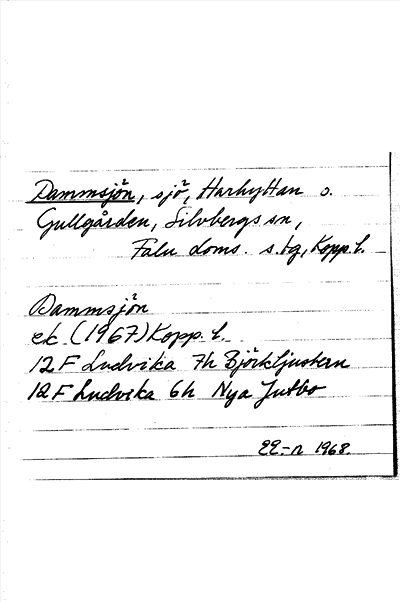 Dammsjön, sjö, Harhyttan o.
Gullgården, Silvbergs sn,
Falu doms. s. tg, Kopp. l.
Dammsjön
ek. (1967) Kopp. l.
12 F Ludvika 7h Björkljustern
12 F Ludvika 6h Nya Jutbo
1968.